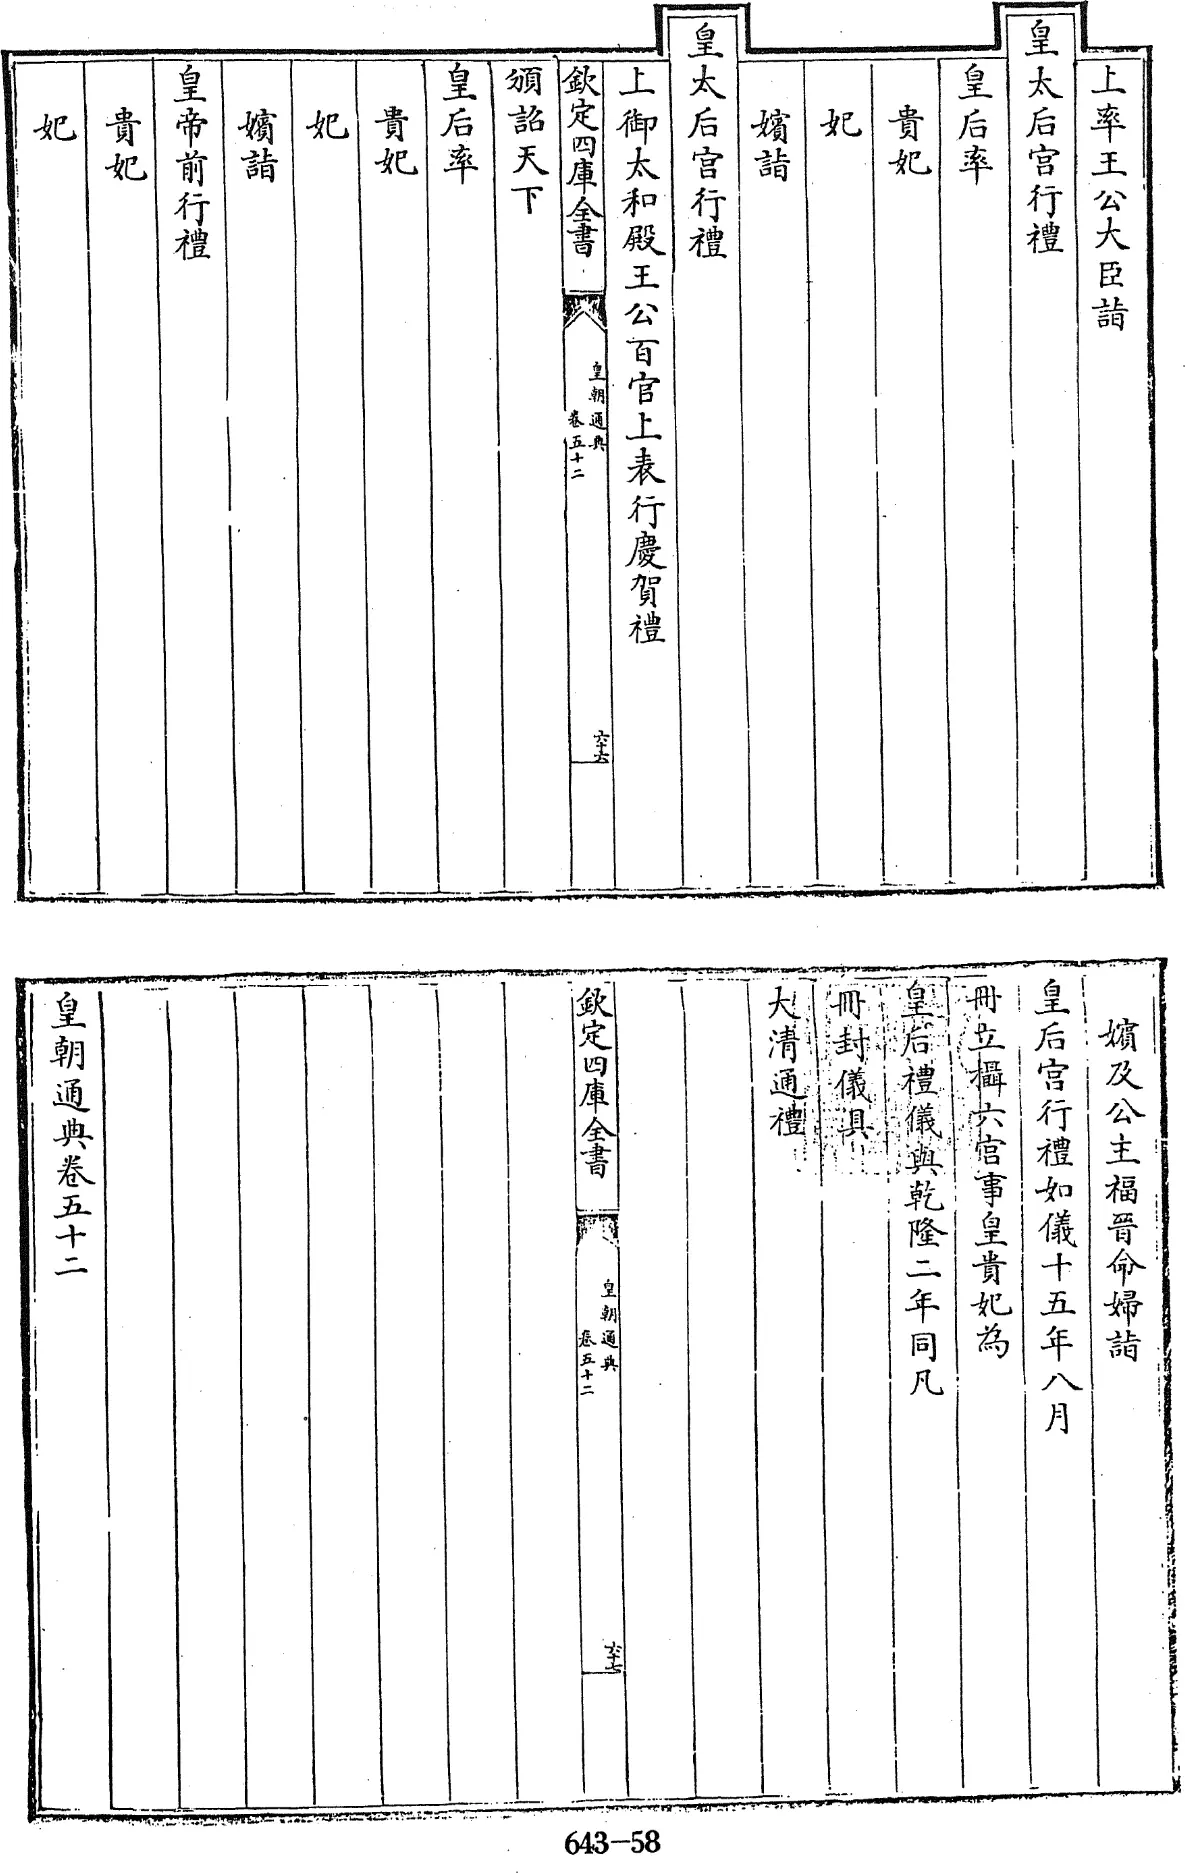 上率王公大臣詣
皇太后宫行禮
皇后率
貴妃
妃
嬪詣
皇太后宫行禮
上御太和殿王公百官上表行慶賀禮
欽定四庫全書
皇朝通典
卷五十二
六十六
頒詔天下
皇后率
貴妃
妃
嬪詣
皇帝前行禮
貴妃
妃
嬪及公主福晉命婦詣
皇后宫行禮如儀十五年八月
冊立攝六宫事皇貴妃為
皇后禮儀與乾隆二年同凡
冊封儀具
大清通禮
欽定四庫全書
皇朝通典
卷五十二
六十七
皇朝通典卷五十二
643-58